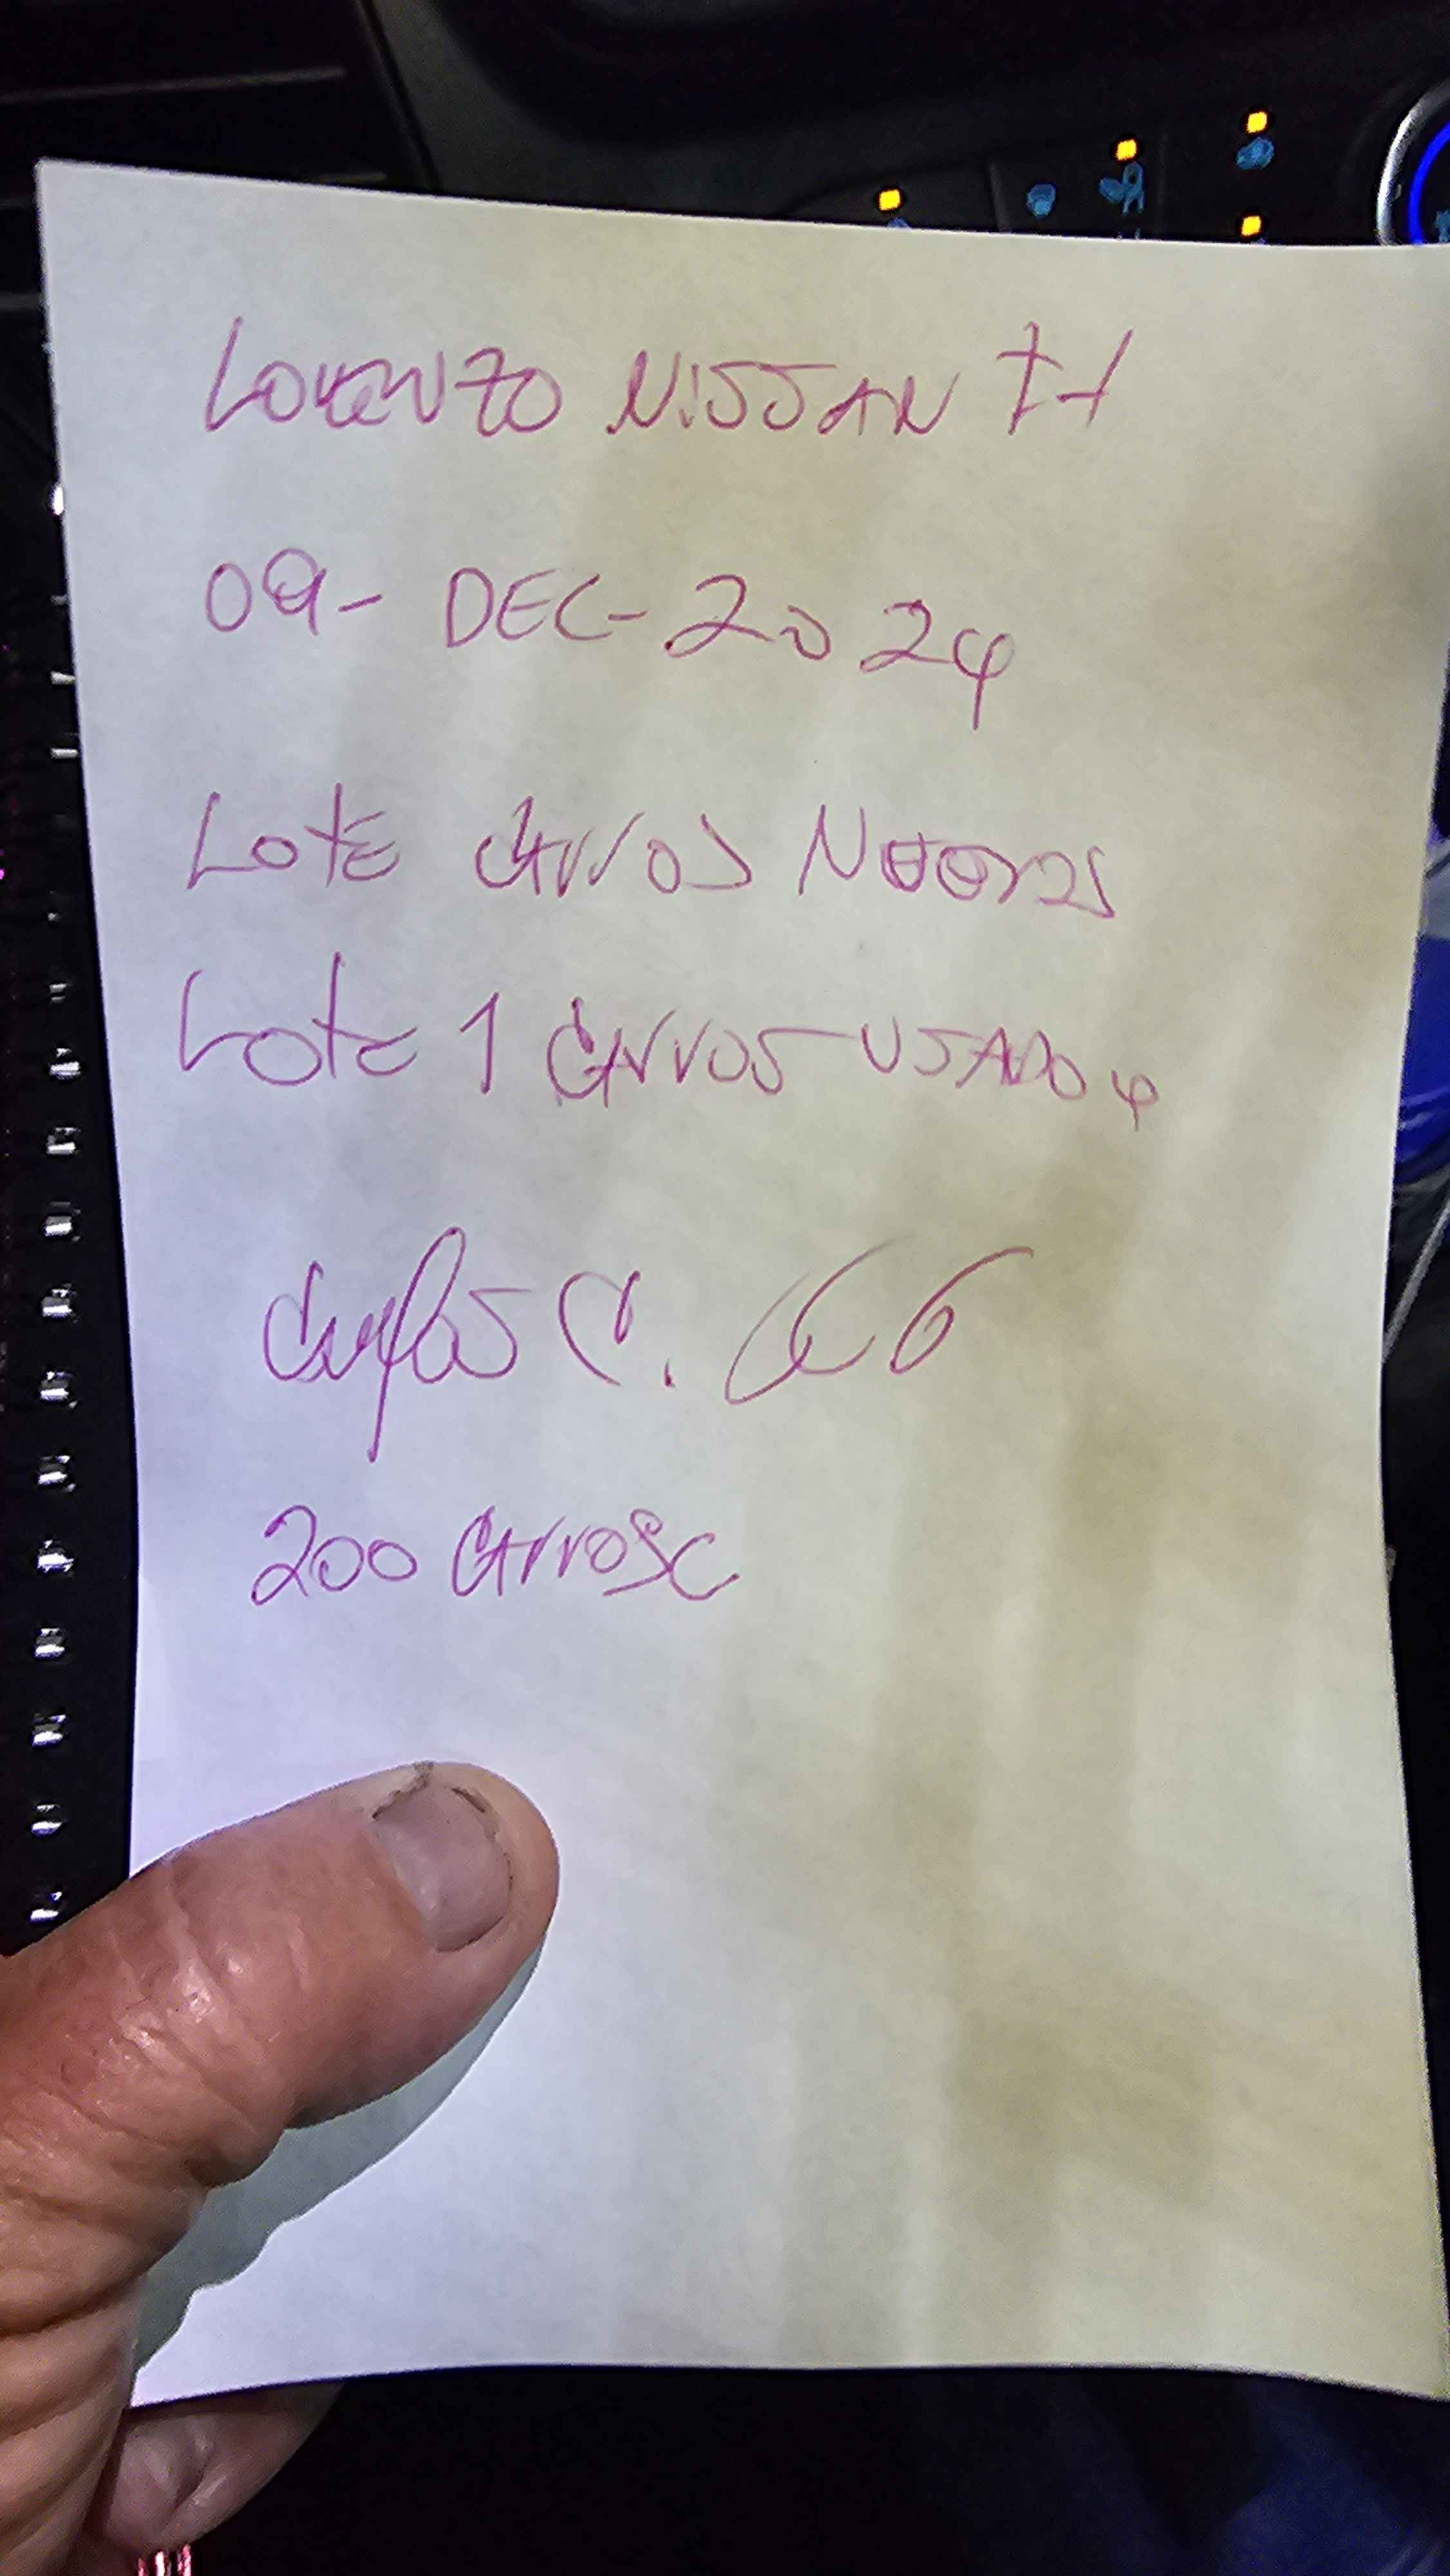 LORENZO NISSAN
09-DEC-2024
Lote CArros
Lote 1 CArros USADO
Carlos C.
200 CArros